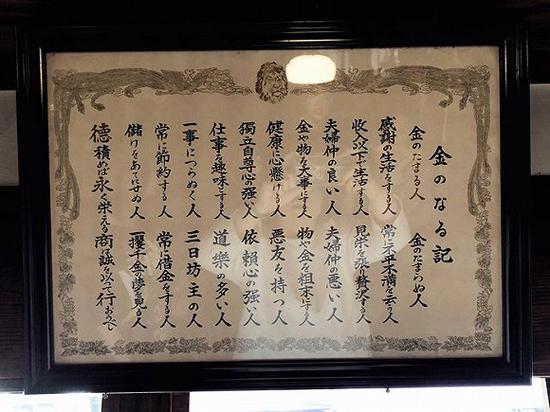 金のなる記
金のたまる人 金のたまらぬ人
感謝の生活をする人 常に不平不満を云う人
收入以下で生活する人 見栄を張り贅沢する人
夫婦仲の良い人 夫婦仲の悪い人
金や物を大事にする人 物や金を粗末にする人
健康に心懸ける人 悪友を持つ人
獨立自尊心の強い人 依頼心の強い人
仕事を趣味とする人 道樂の多い人
一事につらぬく人 三日坊主の人
常に節約する人 常に借金をする人
儲けをあてにせぬ人 一攫千金の夢を見る人
徳積めば永く栄える商に誠を以って行おのべ